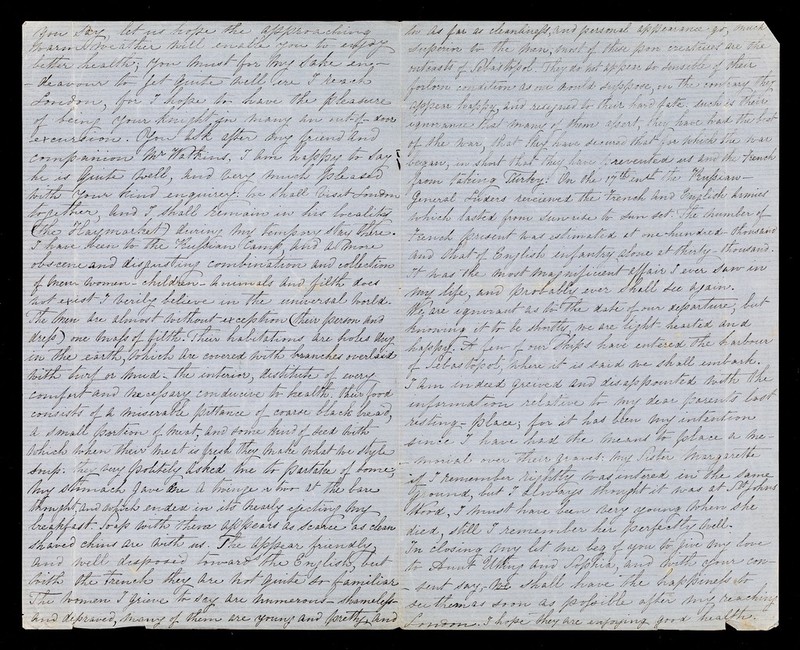 You say let us hope the approaching
warm weather will enable you to enjoy
better health; you must for my sake en-
-deavour to get quite well ere I reach
London, for I hope to have the pleasure
of being your Knight, on many an out-of-door
excursion. You ask after my friend and
companion Mr Watkins. I am happy to say
he is quite well, and very much pleased
with your kind enquiree. We shall visit London
together, and I shall remain in his locality
(the Haymarket) during my tempory stay there.
I have been to the Russian Camp, and a more
obscene and disgusting combination and collection
of men-women-children-animals and filth does
not exist I verily believe in the universal world.
The men are almost without exception (their person and
dress) one mass of filth. Their habitations are holes dug
in the earth, which are covered with branches overlaid
with turf or mud. the interior, destitute of every
comfort and necessary conducive to health, their food
consists of a miserable pittance of coarse black bread,
a small portion of meat, and some kind of seed with
which when their meat is fresh they make what we style
soup. They very politely asked me to partake of some;
my stomach gave me a twinge or two at the bare
thought, and which ended in its nearly ejecting my
breakfast. Soap with them appears as scarce as clean
shaved chins are with us. The appear friendly,
and well desposed toward the English, but
with the French they are not quite so familiar
The women I grieve to say are numerous-shameless
and depraved, many of them are young and pretty, and
too as far as cleanliness, and personal appearance go, much
superior to the men, most of these poor creatures are the
outcasts of Sebastopol. They do not appear so sensible of their
forlorn condition as we should suppose, on the contrary they
appear happy, and resigned to their hard fate. such is their
ignorance that many of them assert, they have had the best
of the war, that they have secured that for which the war
began, in short that they have prevented us and the French
from taking Turkey. On the 17th inst the Russian-
General Luders reviewed the French and English armies
which lasted from sunrise to sun set. The number of
French present was estimated at one-hundred thousand
and that of English infantry alone at thirty-thousand.
It was the most magnificent affair I ever saw in
my life, and probably ever shall see again.
We are ignorant as to the date of our departure, but
knowing it to be shortly, we are light-hearted and
happy. A few of our ships have entered the harbour
of Sebastopol, where it is said we shall embark.
I am indeed greived and disappointed with the
information relative to my dear parents last
resting-place, for it has been my intention
since I have had the means to place a me-
-morial over their graves. my sister Margarette
if I remember rightly was intered in the same
ground, but I always thought it was at St Johns
Wood, I must have been very young when she
died, still I remember her perfectly well.
In closing my let me beg of you to give my love
to Aunt and Sophia, and with your con-
-sent say, we shall have the happiness to
see them as soon as possible after my reaching
London. I hope they are enjoying good health.